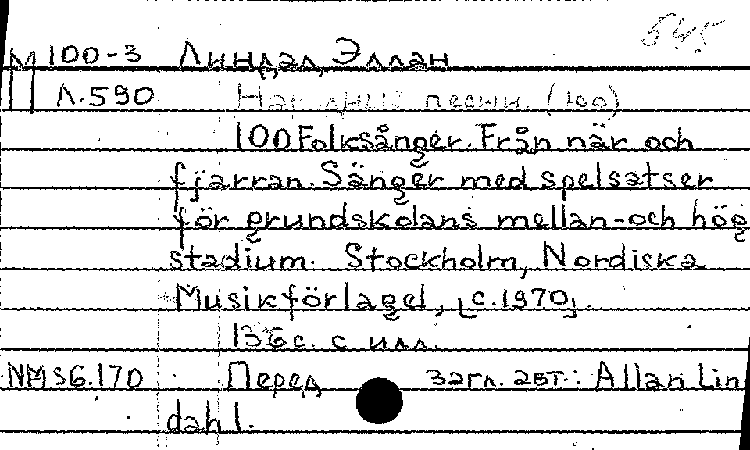 545
М 100-3 Линдал, Эллан
Л.590 Народные песни. (100)
100 Folksånger. Från när och
fjarran. Sånger med spelsatser
för grundskolans mellan-och hög
stadium. Stockholm, Nordiska
Musikförlaget, [c.1970].
136 с. с илл.
NMS 6.170 Перед загл. авт.: Allan Lin
dahl.